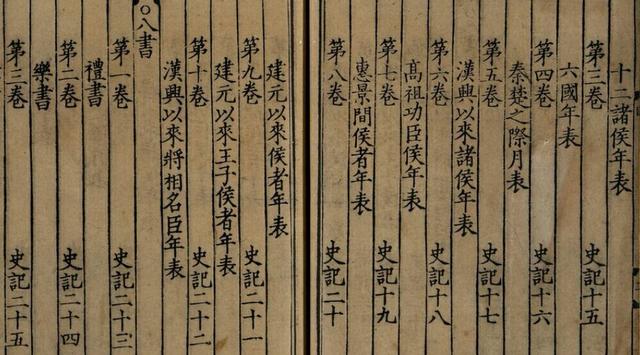 十二諸侯年表
第三卷 史記十五
六國年表
第四卷 史記十六
秦楚之際月表
第五卷 史記十七
漢興以來諸侯年表
第六卷 史記十八
高祖功臣侯年表
第七卷 史記十九
惠景間侯者年表
第八卷 史記二十
建元以來侯者年表
第九卷 史記二十一
建元以來王子侯者年表
第十卷 史記二十二
漢興以來將相名臣年表
○八書
第一卷 史記二十三
禮書
第二卷 史記二十四
樂書
第三卷 史記二十五